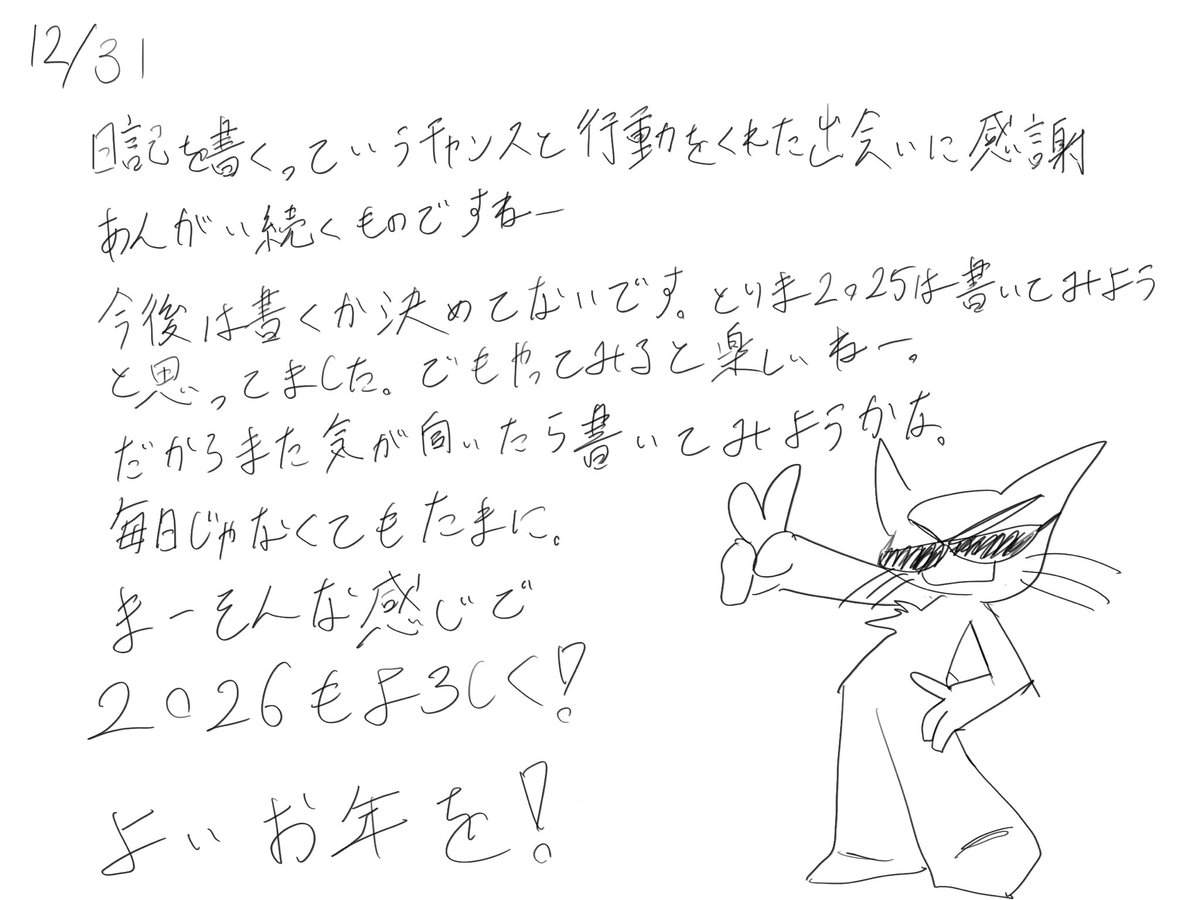 12/31
日記を書くっていうチャンスと行動をくれた出会いに感謝
あんがい続くものですねー
今後は書くか決めてないです。とりま2025は書いてみよう
と思ってました。でもやってみると楽しいねー。
だからまた気が向いたら書いてみようかな。
毎日じゃなくてもたまに。
まーそんな感じで
2026もよろしく!
よいお年を!